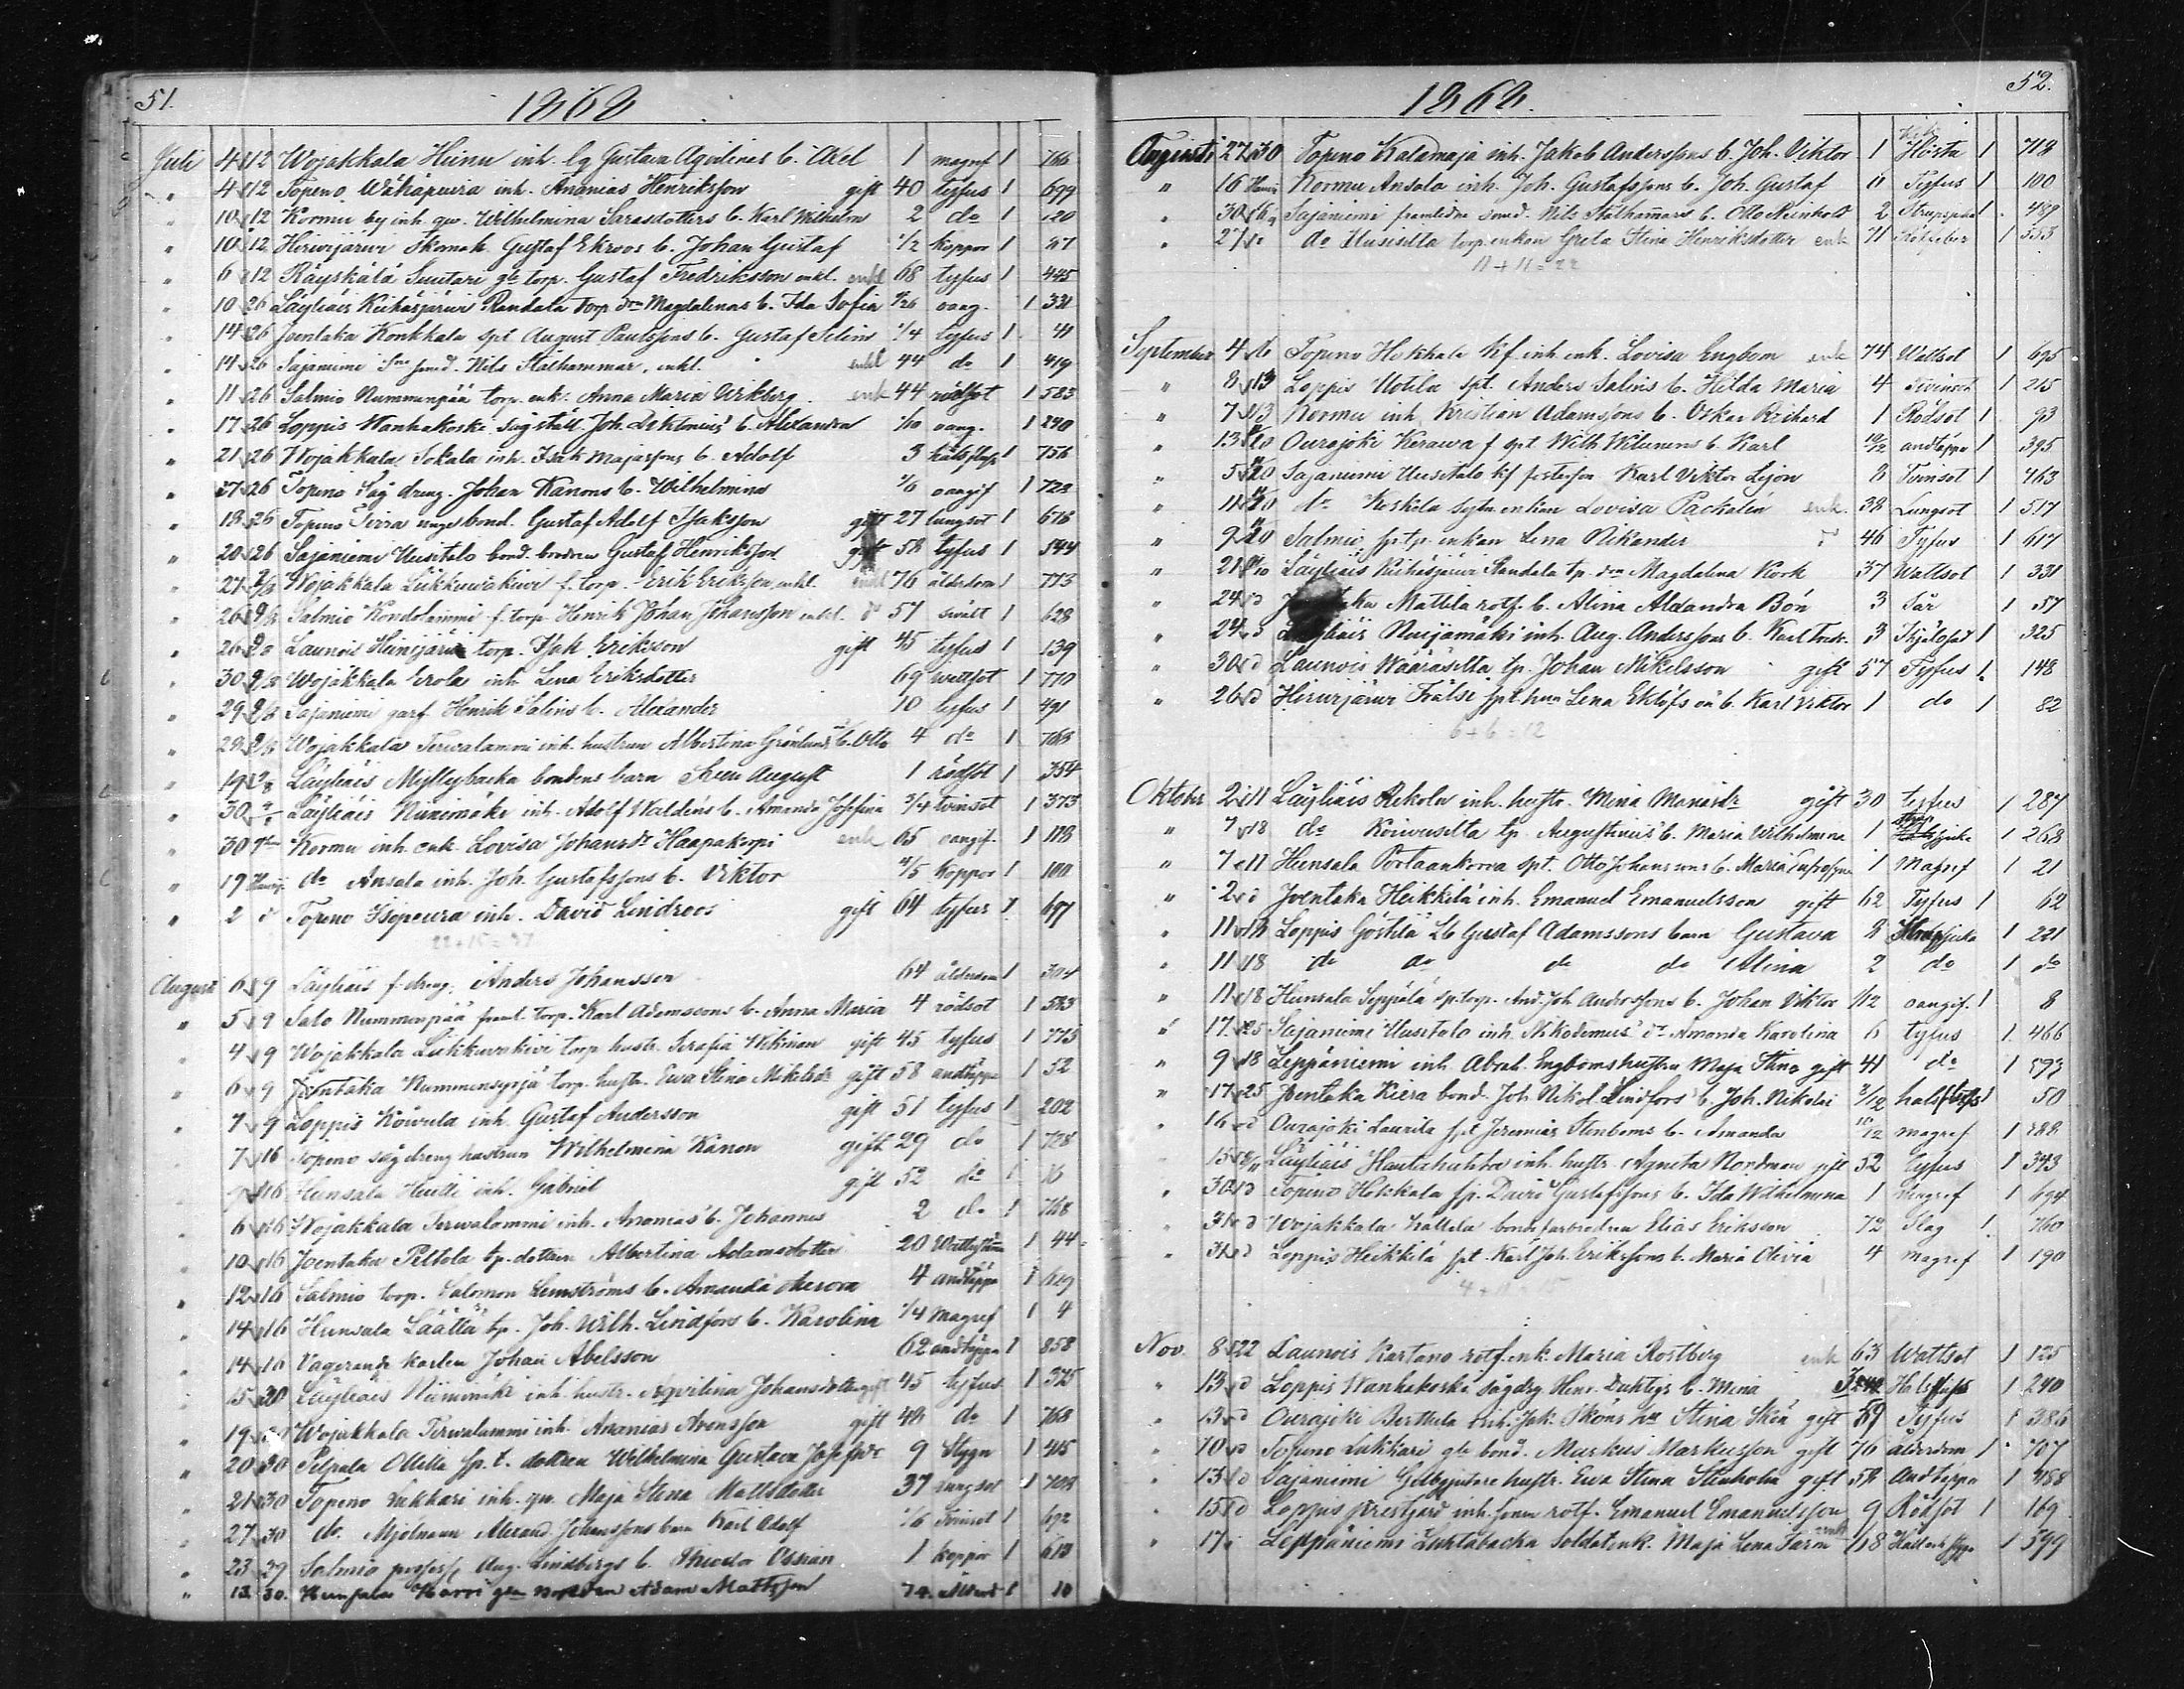 51.
1868
Juli 4 12 Wojakkala Heinu inh. Gustava Aqvilinas b. Axel 1 magref 1 766
" 4 12 Topeno Wähäpuira inh. Ananias Henriksson gift 40 tyfus 1 699
" 10 12 Kormu by inh. qv. Wilhelmina Sarasdotters b. Karl Wilhelm 2 do 1 120
" 10 12 Hirvijärvi Skomak Gustaf Ekroos b. Johan Gustaf 1/2 koppor 1 87
" 6 12 Räyskälä Suutari gle torp. Gustaf Fredriksson enkl. enkl 68 tyfus 1 445
" 10 26 Läyliäis Keihäsjärvi Randala torp drn Magdalenas b. Ida Sofia oang. 1 331
" 14 26 Joentaka Konkkala spt August Paulssons b. Gustaf Selim 1/4 tyfus 1 41
" 14 26 Sajaniemi smed. Nils Stålhammar, enkl. enkl 44 do 1 419
" 11 26 Salmio Nummenpää torp. enk. Anna Maria Wikberg enk 44 rödsot 1 583
" 17 26 Loppis Wanhakoski sågställ. Joh. b. Alexandra 1/10 oang. 1 240
" 21 26 Wojakkala Sokala inh. Isak Majassons b. Adolf 3 1 756
" 27 26 Topeno Såg dreng. Johan Kanons b. Wilhelmina 1/6 oangif 1 728
" 18 26 Topeno Pirra unge bond. Gustaf Adolf Isaksson gift 27 lungsot 1 676
" 20 26 Sajaniemi Uusitalo bond. brodren Gustaf Henriksson gift 58 tyfus 1 544
" 27 2/8 Wojakkala Liikkuwakiwi f. torp. Erik Eriksson enkl. enkl 76 ålderdom 1 773
" 26 9/8 Salmio Kondolammi f. torp. Henrik Johan Johansson enkl. do 57 swält 1 628
" 26 Launois Heinijärvi torp. Isak Eriksson gift 45 tyfus 1 139
" 30 Wojakkala Erola inh. Lena Eriksdotter 69 wattsot 1 770
" 29 Sajaniemi garf. Henrik Salins b. Alexander 10 tyfus 1 491
" 28 Wojakkala Terwalammi inh. hustrun Albertina Grönlunds b. Otto 4 do 1 768
" 19 Läyliäis Myllybacka bondens barn Sven August 1 rödsot 1 354
" 30 Läyliäis Niinimäki inh. Adolf Waldéns b. Amanda Josefina 3/4 twinsot 1 373
" 30 Kormu inh. enk. Lovisa Johansdr Haapakorpi enk 65 oangif. 1 118
" 19 do Ansala inh. Joh. Gustafssons b. Viktor koppor 1 100
" 2 d Topeno Isopeura inh. David Lindroos gift 64 tyfus 1 697
22 + 15 = 37
Augusti 6 9 Läyliäis f. dreng. Anders Johansson 64 ålderdom 1 304
" 5 9 Salo Nummenpää framl. torp. Karl Adamssons b. Anna Maria 4 rödsot 1 583
" 4 9 Wojakkala Liikkuvakivi torp. hustr. Serafia Wikman gift 45 tyfus 1 773
" 6 9 Joentaka Nummensyrjä torp. hustr. Ewa Stina Mikelsdr gift 58 andtäppa 1 52
" 7 9 Loppis Köwula inh. Gustaf Andersson gift 51 tyfus 1 202
" 7 16 Topeno såg dreng hustrun Wilhelmina Känon gift 29 do 1 728
" 16 Hunsala Huitti inh. Gabriel gift 52 do 1 16
" 6 16 Wojakkala Terwalammi inh. Ananias b. Johannes 2 do 1 768
" 10 16 Joentaka Peltola tp. dottren Albertina Adamsdotter 20 1 44
" 12 16 Salmio torp. Salomon Lemströms b. Amanda 4 andtäppa 1 629
" 14 16 Hunsala Läättä tp. Joh. Wilh. Lindfors b. Karolina 1/4 Magref 1 4
" 14 16 Vagerande karlen Johan Abelsson 62 andtäppa 1 858
" 15 30 Läyliäis Niinimäki inh. hustr. Aqvilina Johansdotter gift 45 tyfus 1 375
" 19 Wojakkala Terwalammi inh. Ananias Arensson gift 48 do 1 768
" 20 30 Pilpala Ollila sp. t. dottren Wilhelmina Gustava Josefsdr 9 Stygn 1 415
" 21 30 Topeno Lukkari inh. qv. Maja Stina Mattsdotter 37 lungsot 1 708
" 27 30 do. Mjölnaren Alexand. Johanssons barn Karl Adolf 1/6 Twinsot 1 692
" 23 29 Salmio Aug. Lindbergs b. Theodor Ossian 1 koppor 1 613
" 13 30. Hunsala Harri gle Adam Mattsson 74. 1 10
52.
1868.
Augusti 27 30 Topeno Kalamaja inh. Jakob Anderssons b. Joh. Viktor 1 Kik Hosta 1 718
" 16 Kormu Ansala inh. Joh. Gustafssons b. Joh. Gustaf 11 Tyfus 1 100
" 30 Sajaniemi framlidne smed. Nils Stålhammars b. Otto Reinhold 2 Strupsjuka 1 489
" 27 do Uusisilta torp. enkan Greta Stina Henriksdotter enk 71 Rötfeber 1 553
11 + 11 = 22
September 4 6 Topeno Hokkala kf. inh. enk. Lovisa Engbom enk 74 Wattsot 1 695
" 8 13 Loppis Uotila spt. Anders Salins b. Hilda Maria 4 Twinsot 1 215
" 7 13 Kormu inh. Kristian Adamssons b. Oskar Richard 1 Rödsot 1 93
" 13 20 Ourajoki Kerawa f spt. Wilh. Wilunens b. Karl 10/12 andtäppa 1 395
" 5 20 Sajaniemi Uusitalo kf fosterson Karl Viktor Lejon 8 Twinsot 1 463
" 11 20 do Koskela sytn. enkan Lovisa Packalén enk. 38 Lungsot 1 517
" 9 20 Salmio sp. tp. enkan Lena Nikander d 46 Tyfus 1 617
" 21 Läyliäis Keihäsjärvi Randala tp. drn Magdalena Kork 37 Wattsot 1 331
" 24 d Mattila rotf. b. Alina Alexandra Bön 3 Sår 1 57
" 24 d Läyliäis Nuijamäki inh. Aug. Anderssons b. Karl Fredr. 3 1 325
" 30 d Launois Wääräsilta tp. Johan Mikelsson gift 57 Tyfus 1. 148
" 26 d Hirvijärvi Frälsi spt. hun Lena Eklöfs oä b. Karl Viktor 1 do 1 82
6 + 6 = 12
Oktober 2 11 Läyliäis Rekola inh. hustr. Mina Manasdr gift 30 tyfus 1 287
" 7 18 do Koivusilta tp. Augustinis b. Maria Wilhelmina 1 strupsjuka 1 268
" 7 11 Hunsala Portaankorva spt. Otto Johanssons b. Maria Eufrosyna 1 Magref 1 21
" 2 d Joentaka Heikkilä inh. Emanuel Emanuelsson gift 62 Tyfus 1 62
" 11 18 Loppis Göstilä Lb Gustaf Adamssons barn Gustava 8 Strupsjuka 1 221
" 11 18 do do do do Alina 2 do 1 do
" 11 18 Hunsala Seppälä sp. torp. And. Joh. Anderssons b. Johan Viktor 1/12 oangif. 1 8
" 17 25 Sajaniemi Uusitalo inh. Nikodemus dr Amanda Karolina 6 tyfus 1 466
" 9 18 Leppäniemi inh. Abrah. Engboms hustru Maja Stina gift 44 do 1 593
" 17 25 Joentaka Kiera bond. Joh. Nikol. Lindfors b. Joh. Nikolai 2/12 halsfluss 1 50
" 16 d Ourajoki Laurila spt Jeremias Stenboms b. Amanda 10/12 magref 1 488
" 15 Läyliäis Hautahuhta inh. hustr. Agneta Nordman gift 52 tyfus 1 343
" 30 d Topeno Hokkala sp. David Gustafssons b. Ida Wilhelmina 1 magref 1 694
" 31 d Wojakkala Kattela bondefarbrodren Elias Eriksson 72 Slag 1 760
" 31 d Loppis Heikkilä spt. Karl Joh. Erikssons b. Maria Olivia 4 magref 1 190
4 + 11 = 15
Nov. 8 22 Launois Kartano rotf. enk. Maria Rostberg enk 63 Wattsot 1 125
" 13 d Loppis Wanhakoski sågdrg. Henr. b. Mina Halsfluss 1 240
" 13 d Ourajoki Berttula inh. Jak. Sköns hu Stina Skön gift 59 Tyfus 1 386
" 10 d Topeno Lukkari gle bond. Markus Markusson gift 76 ålderdom 1 707
" 13 d Sajaniemi Gelbgjutare hustr. Ewa Stina Stenholm gift 58 Andtäppa 1 488
" 15 d Loppis prestgård inh. sonen rotf. Emanuel Emanuelsson 9 Rödsot 1 169
" 17 Leppäniemi Luhtabacka Soldatenk. Maja Lena Farm enk 1 599